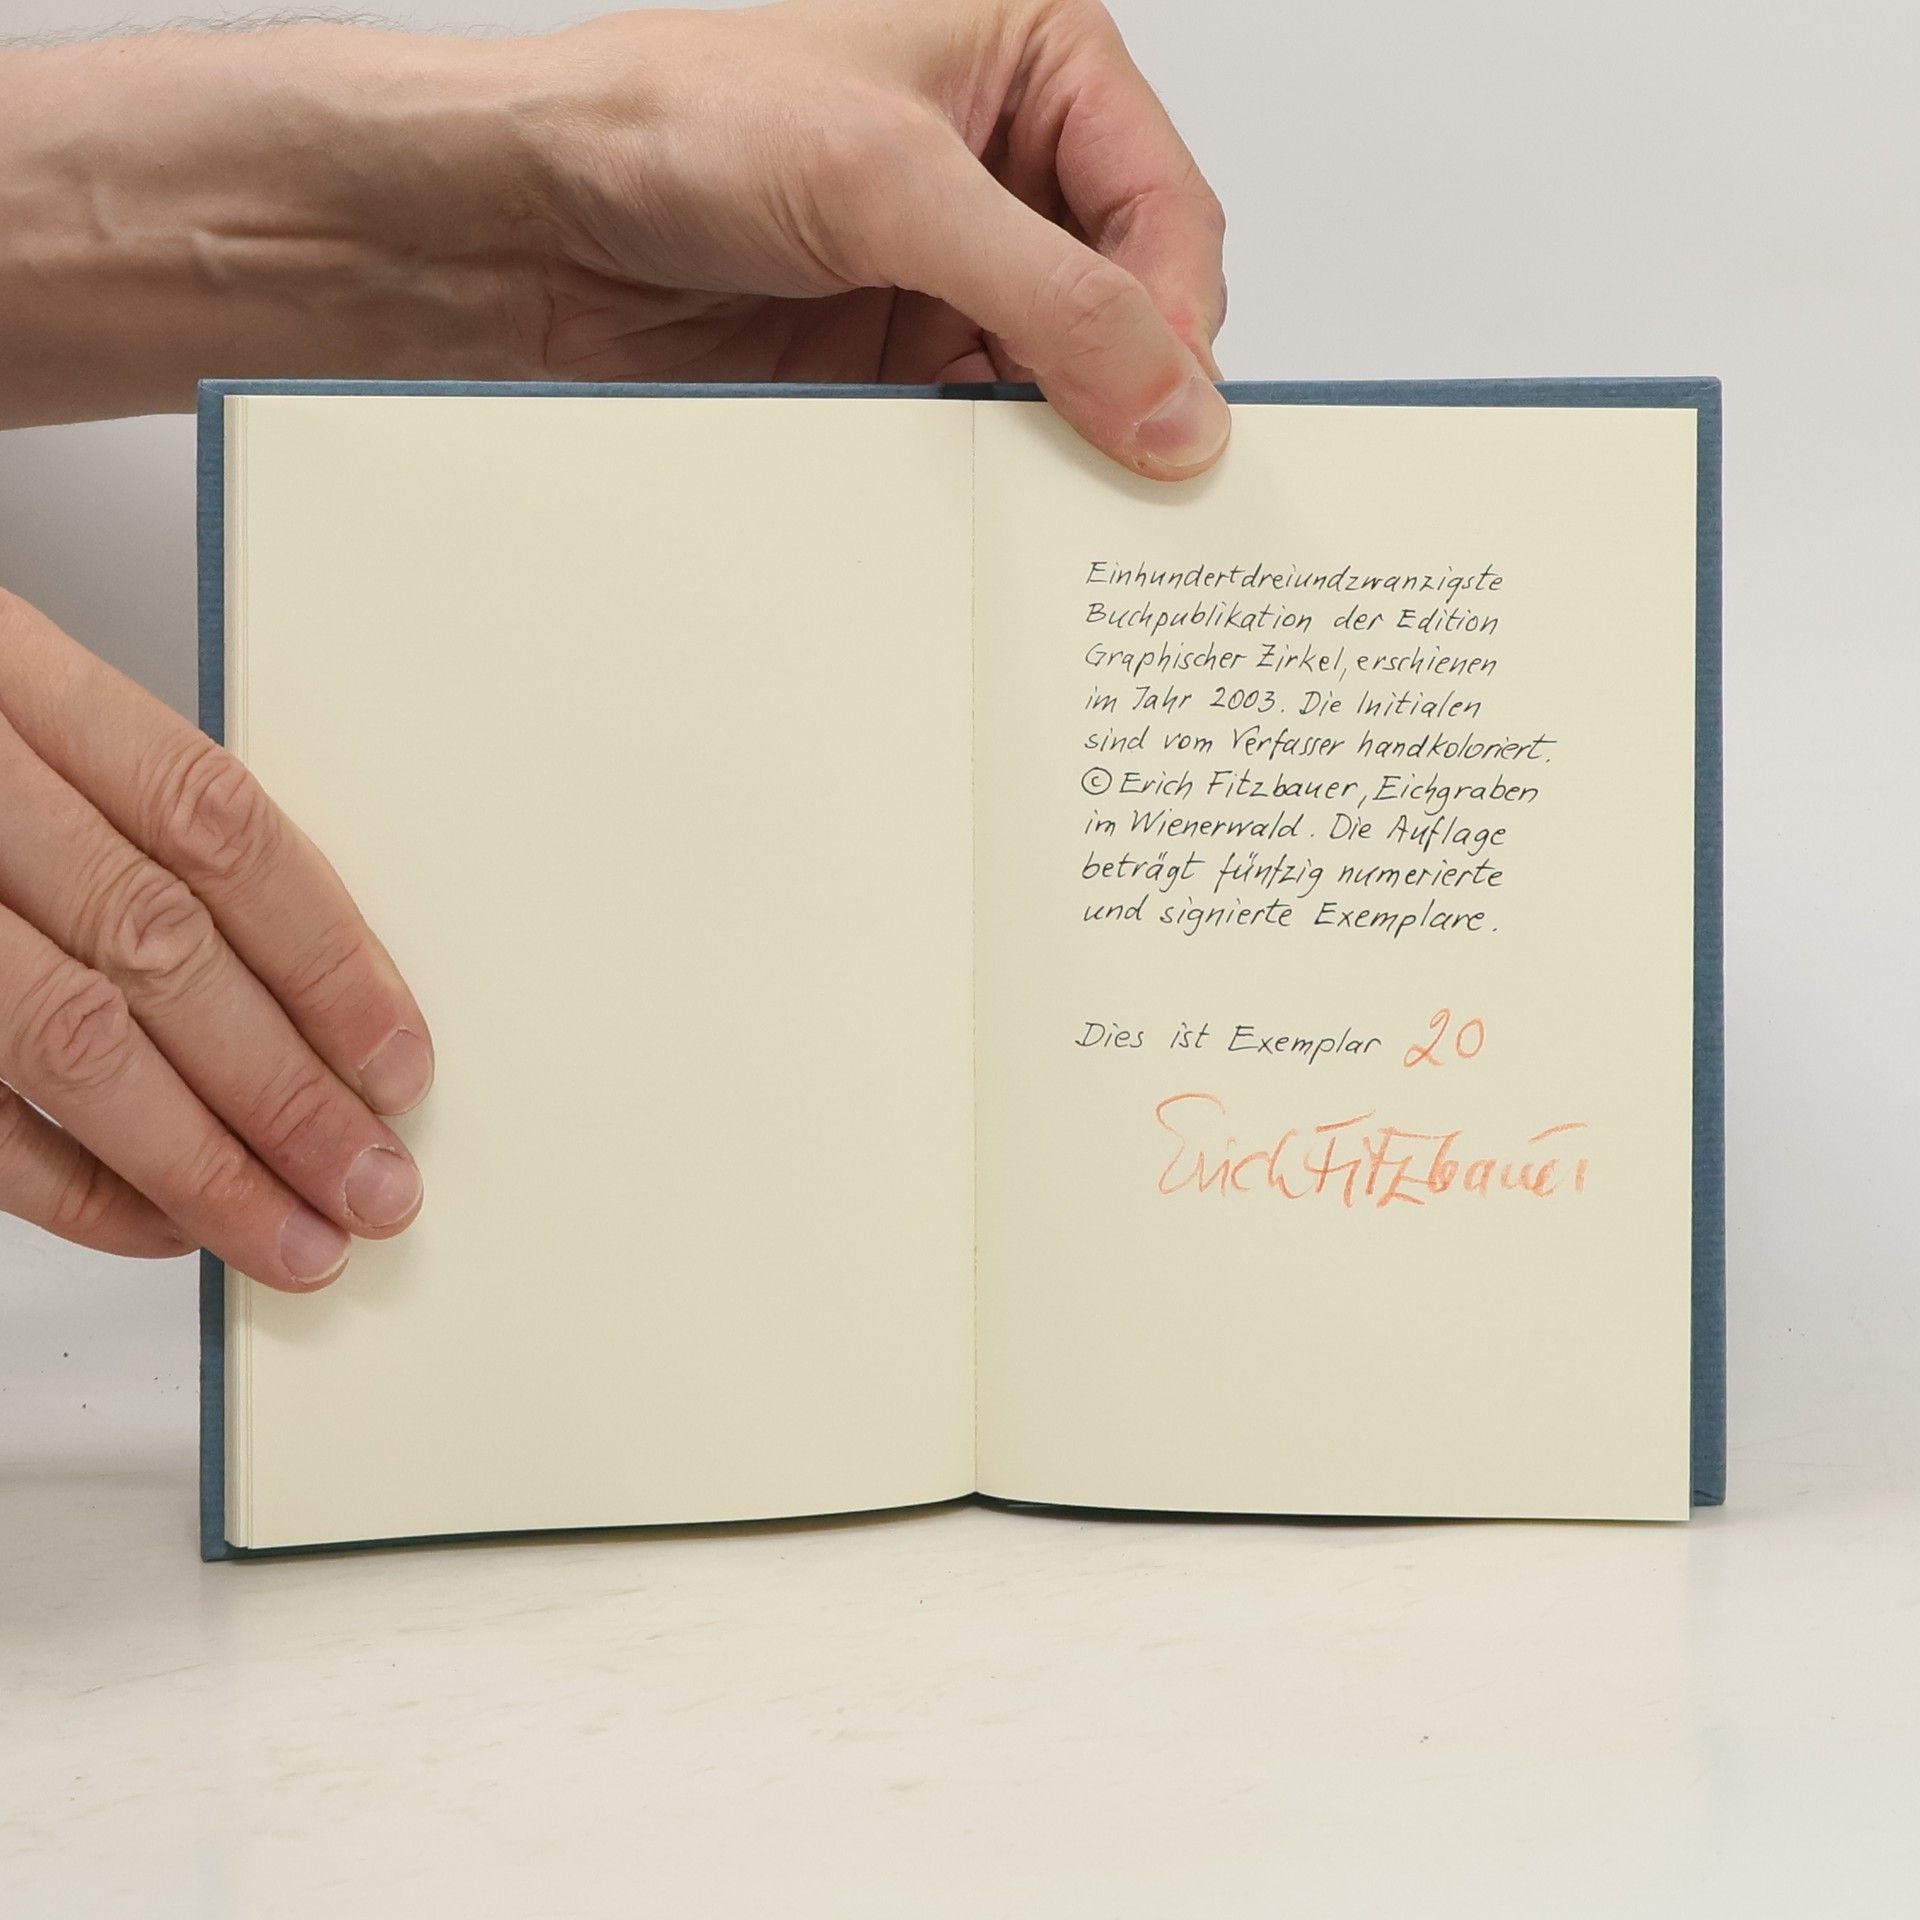 Einhundertdreiundzwanzigste
Buchpublikation der Edition
Graphischer Zirkel, erschienen
im Jahr 2003. Die Initialen
sind vom Verfasser handkoloriert.
© Erich Fitzbauer, Eichgraben
im Wienerwald. Die Auflage
beträgt fünfzig numerierte
und signierte Exemplare.
Dies ist Exemplar 20
Erich Fitzbauer